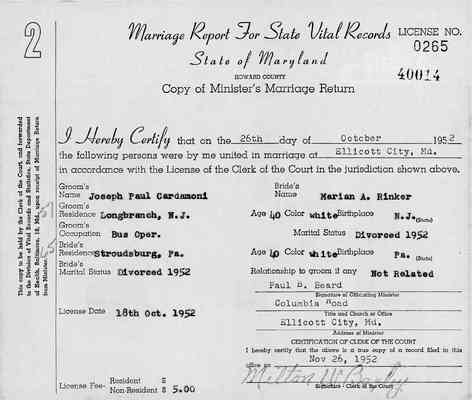 2
Marriage Report For State Vital Records
LICENSE NO.
0265
State of Maryland
40014
HOWARD COUNTY
Copy of Minister's Marriage Return
I Hereby Certify that on the 26th day of October 1952
the following persons were by me united in marriage at Ellicott City, Md.
in accordance with the License of the Clerk of the Court in the jurisdiction shown above.
Groom's Name Joseph Paul Cardamoni Bride's Name Marian A. Rinker
Groom's Residence Longbranch, N.J. Age 40 Color white Birthplace N.J. (State)
Groom's Occupation Bus Oper. Marital Status Divorced 1952
Bride's Residence Stroudsburg, Pa. Age 40 Color white Birthplace Pa. (State)
Bride's Marital Status Divorced 1952 Relationship to groom if any Not Related
Paul B. Beard
Signature of Officiating Minister
Columbia Road
Title and Church or Office
License Date 18th Oct. 1952
Ellicott City, Md.
Address of Minister
CERTIFICATION OF CLERK OF THE COURT
I hereby certify that the above is a true copy of a record filed in this
Nov 26, 1952
License Fee- Resident $
Non-Resident $ 5.00
Signature - Clerk of the Court
This copy to be held by the Clerk of the Court, and forwarded
to the Division of Vital Records and Statistics, State Department
of Health, Baltimore, 18, Md., upon receipt of Marriage Return
from Minister.